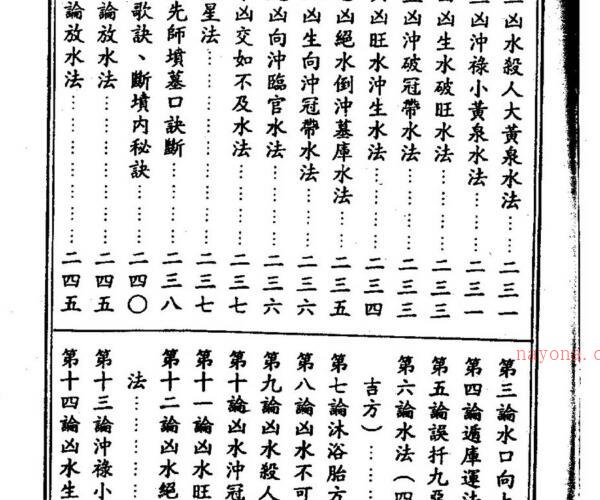 凶水殺人大黃泉水法……二三一
凶沖祿小黃泉水法……二三一
凶生水破旺水法……二三三
凶沖破冠帶水法……二三三
凶旺水沖生水法……二三四
凶絕水倒沖墓庫水法……二三五
凶生向沖冠帶水法……二三六
凶向沖臨官水法……二三六
凶交如不及水法……二三七
星法……二三七
先師墳墓口訣斷……二三八
歌訣、斷墳內秘訣……二四〇
論放水法……二四五
論放水法……二四五
第三論水口向
第四論遁庫運法
第五論誤扦九
第六論水法（四
吉方）……
第七論沐浴胎方
第八論凶水不可
第九論凶水殺人
第十論凶水沖冠
第十一論凶水旺
第十二論凶水絕
法……
第十三論沖祿小
第十四論凶水生
nayona.c